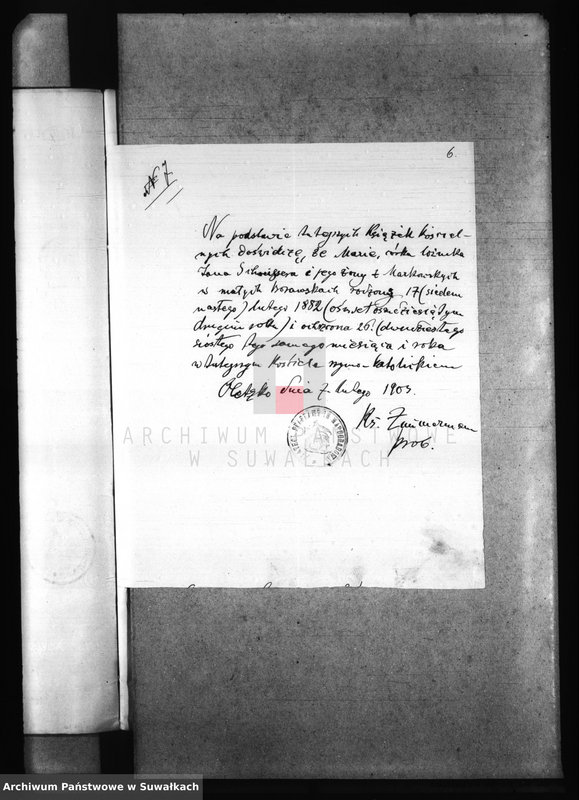 6.
№ 7
Na podstawie tutejszych Książek kościel-
nych doświdzę, że Marie, córka
Jana i jego żony z Markowskych
w małych rodzona 17 (siedem
nastego) lutego 1882 (ośmset
drugim roku) i ochrzona 26. (dwudziestego
szóstego tego samego miesiąca i roka
w tutejszym Kościele rzymo-katolickiem
Oletzko dnia 7. lutego 1903.
Ks. Zimmermann
prob.
ARCHIWUM PAŃSTWOWE
W SUWAŁKACH
Archiwum Państwowe w Suwałkach